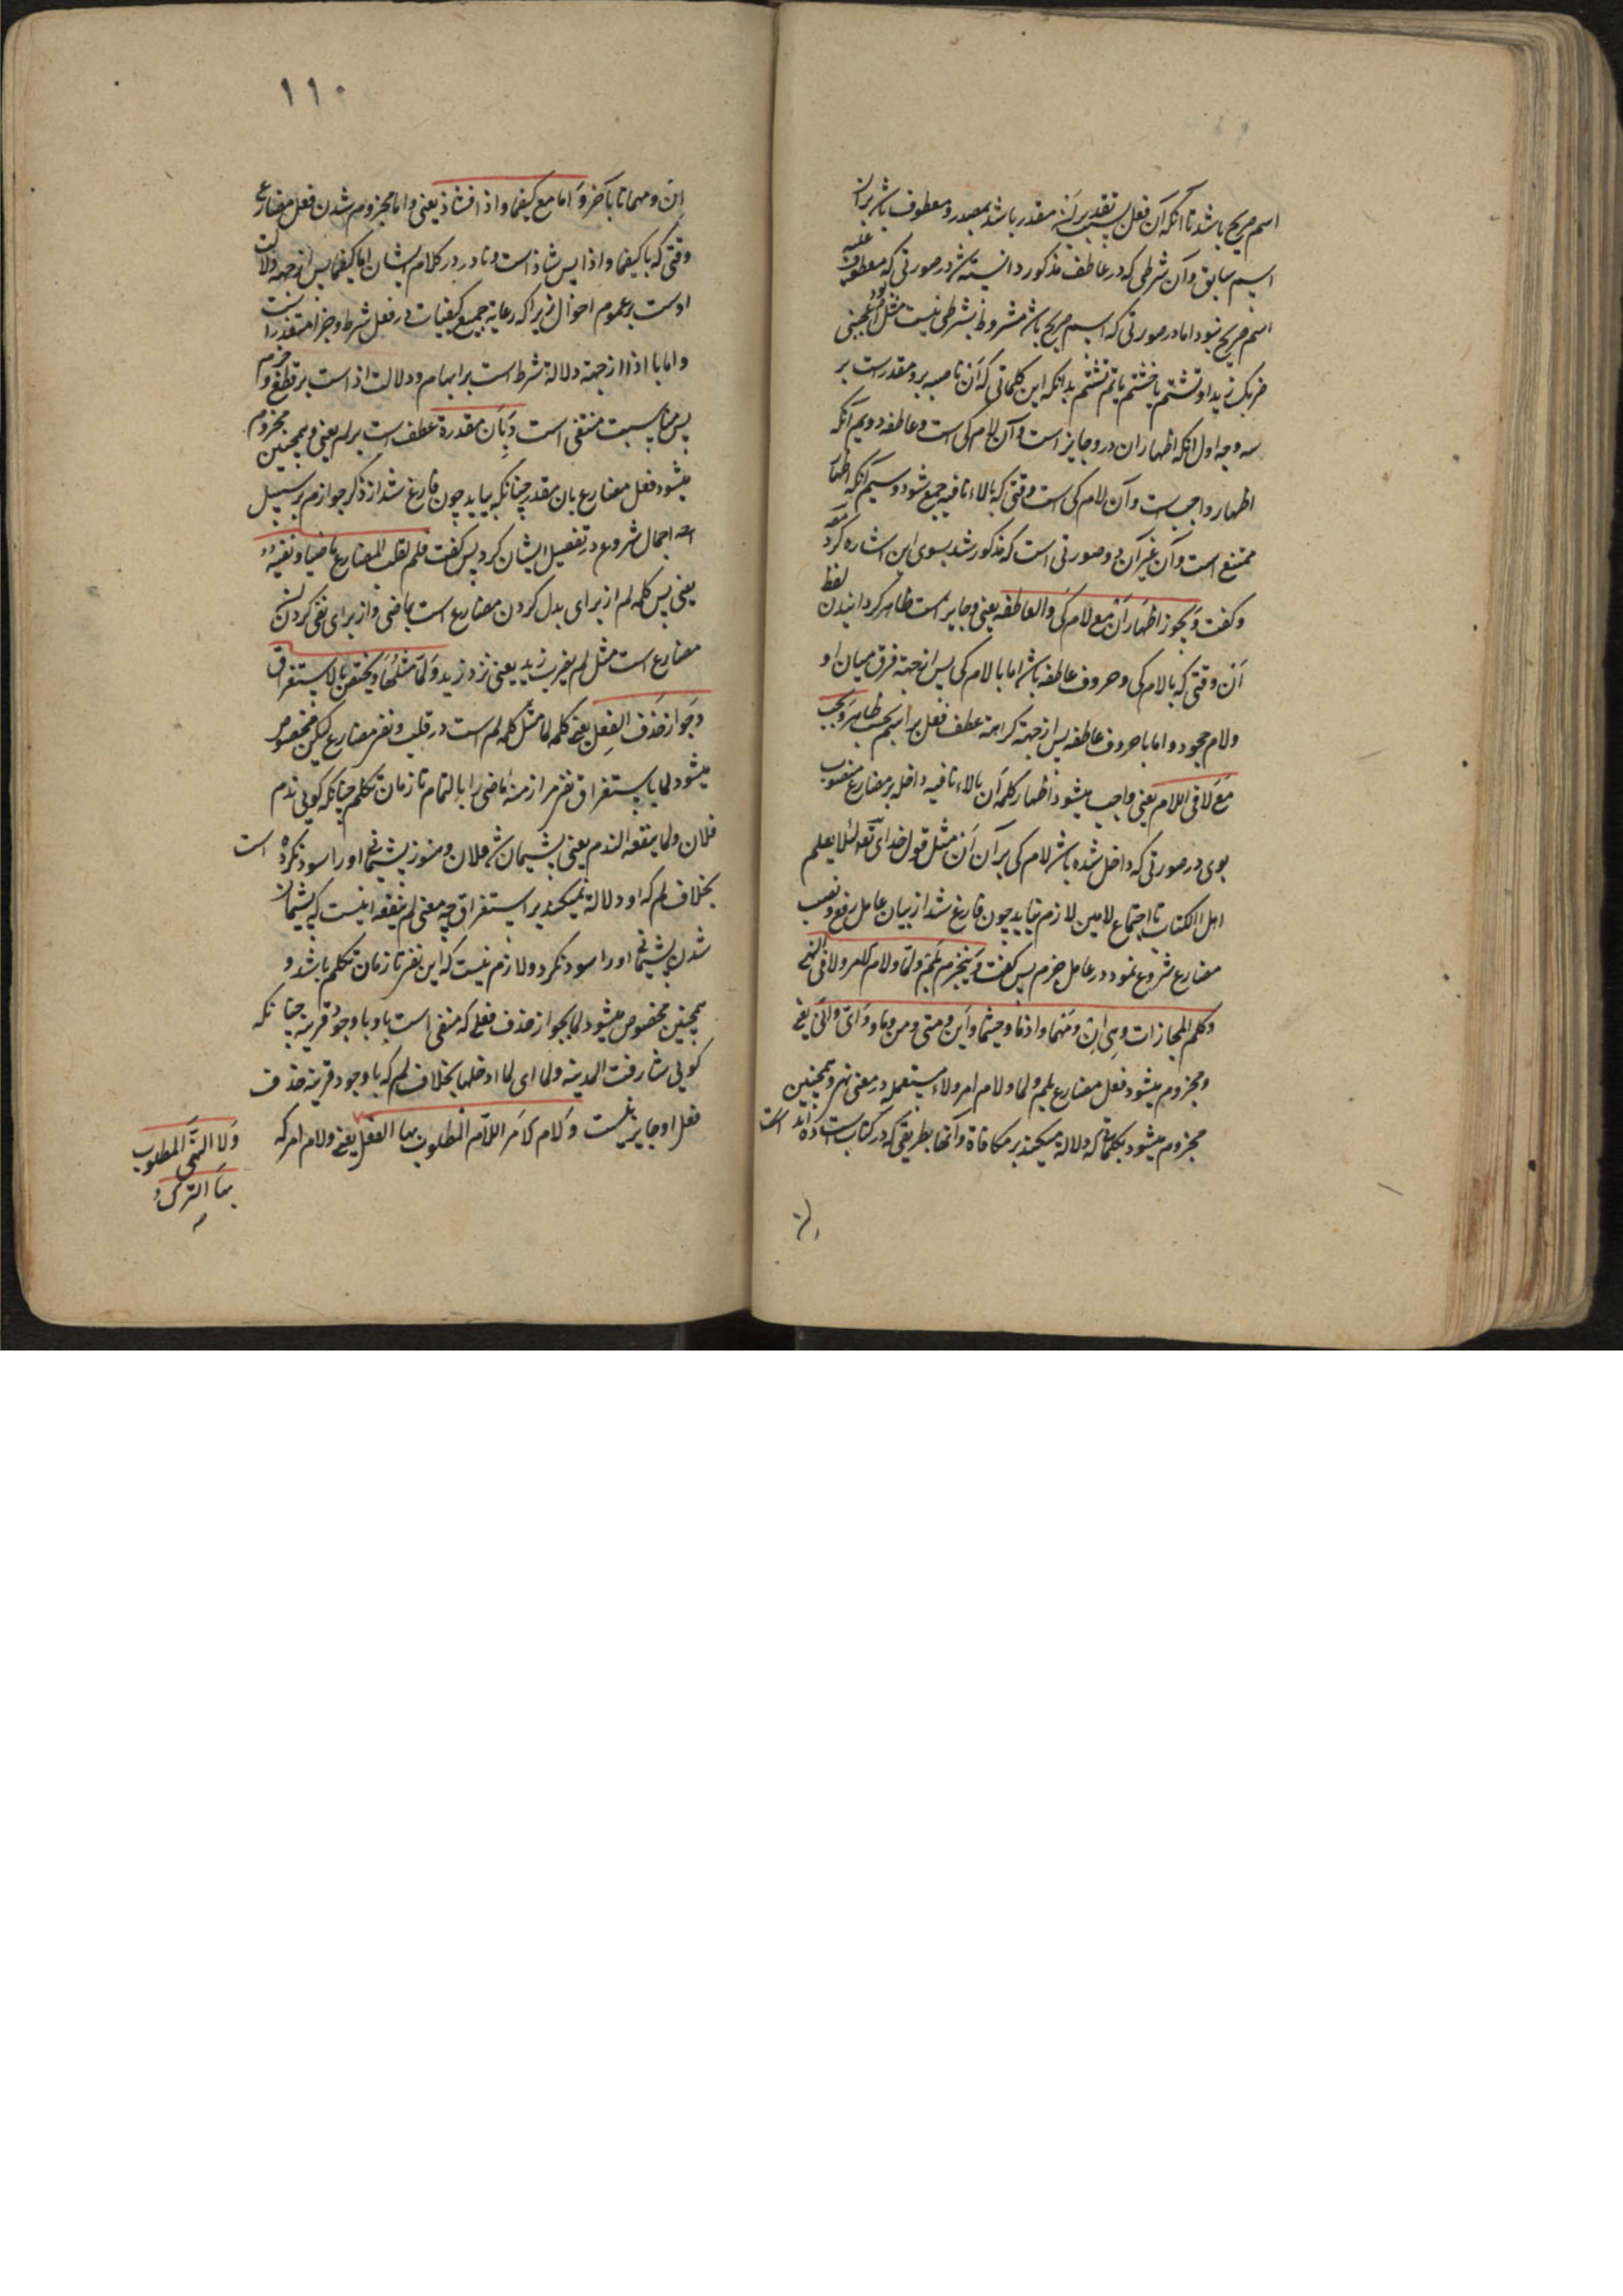 اسم صریح باشد تا آنکه آن فعل بسبب تقدیر اَن مقدر باشد بمصدر و معطوف باشد بران
اسم سابق و آن شرطی که در عاطف مذکور دانسته شد در صورتی که معطوف علیه
اسم صریح نبود اما در صورتی که اسم صریح باشد مشروط بشرطی نیست مثل اعجبنی
ضربک زیدا و تشتم یا فتشتم یا ثم تشتم بدانکه این کلماتی که اَن ناصبه برو مقدر است بر
سه وجه اول آنکه اظهار ان درو جایز است و آن لام کی است و عاطفه دویم آنکه
اظهار واجبست و آن لام کی است وقتی که بالاء نافیه جمع شود و سیم آنکه اظهار
ممتنع است و آن غیر آن دو صورتی است که مذکور شد بسوی این اشاره کرد
و گفت وَیجوز اظهَار اَنْ مع لام کَی والعاطفه یعنی و جایز است ظاهر گردانیدن لفظ
اَن وقتی که بالام کی و حروف عاطفه باشد اما بالام کی پس از جهة فرق میان او
ولام جحود و اما با حروف عاطفه پس از جهة کراهة عطف فعل بر اسم بحسب ظاهر وَیجب
مَعَ لا فی اللام یعنی واجب میشود اظهار کلمه اَن بالاء نافیه داخله بر مضارع منصوب
بوی در صورتی که داخل شده باشد لام کی بر آن اَن مثل قول خدای تعه لئلا یعلم
اهل الکتاب تا اجتماع لامین لازم نیاید چون فارغ شد از بیان عامل رفع و نصب
مضارع شروع نمود در عامل جزم پس گفت وَینجزم بلَم ولمّا ولام الامر ولا فی النهی
وکلم المجازات وهی اِن ومَهما واذما وحیثما واَین ومتی ومن وما وَاَی واَنّی یعنی
ومجزوم میشود فعل مضارع بلم ولما ولام امر ولاء مستعمله در معنی نهی و همچنین
مجزوم میشود بکلماتی که دلالة میکند بر مکافاة و آنها بطریقی که در کتاب است
۱۱۰
اِن ومهما تا باخر وَاَما مع کیفما واذا فشاذ یعنی و اما مجزوم شدن فعل مضارع
وقتی که با کیفما و اذا پس شاذ است و نادر در کلام ایشان اما کیفما پس از جهة دلالت
اوست بر عموم احوال زیرا که رعایة جمیع کیفیات در فعل شرط و جزا متعذر است
و اما با اذا از جهة دلالة شرط است بر ابهام و دلالت اذا است بر قطع و جزم
پس مناسبت منتفی است وَبِاَن مقدرة عطف است بر لم یعنی و همچنین مجزوم
میشود فعل مضارع بان مقدر چنانکه بیاید چون فارغ شد از ذکر جوازم بر سبیل
اجمال شروع در تفصیل ایشان کرد پس گفت فلم لقلب المضارع ماضیا ونفیه
یعنی پس کلمه لم از برای بدل کردن مضارع است بماضی و از برای نفی کردن
مضارع است مثل لم یضرب زید یعنی نزد زید وَلمّا مثلُهَا وَیختص بالاستغراق
وَجَواز حَذف الفِعل یعنی کلمه لما مثل کلمه لم است در قلب و نفی مضارع لیکن مخصوص
میشود لما باستغراق نفی مر ازمنه ماضی را بالتمام تا زمان تکلم چنانکه گویی ندم
فلان ولما ینفعه الندم یعنی پشیمان شد فلان و هنوز پشیمانی او را سود نکرده است
بخلاف لم که او دلالة نمیکند بر استغراق چه معنی لم ینفعه اینست که پشیمان
شد پشیمانی او را سود نکرد و لازم نیست که این نفی تا زمان تکلم باشد و
همچنین مخصوص میشود لما بجواز حذف فعلی که منفی است باو با وجود قرینه چنانکه
گویی شارفت المدینة ولما ای لما ادخلها بخلاف لم که با وجود قرینه حذف
فعل او جایز نیست وَلام الاَمر اللاّم المطلوب بها الفعل یعنی و لام امر که
وَلا النّهی المطلوب
بهَا الترک